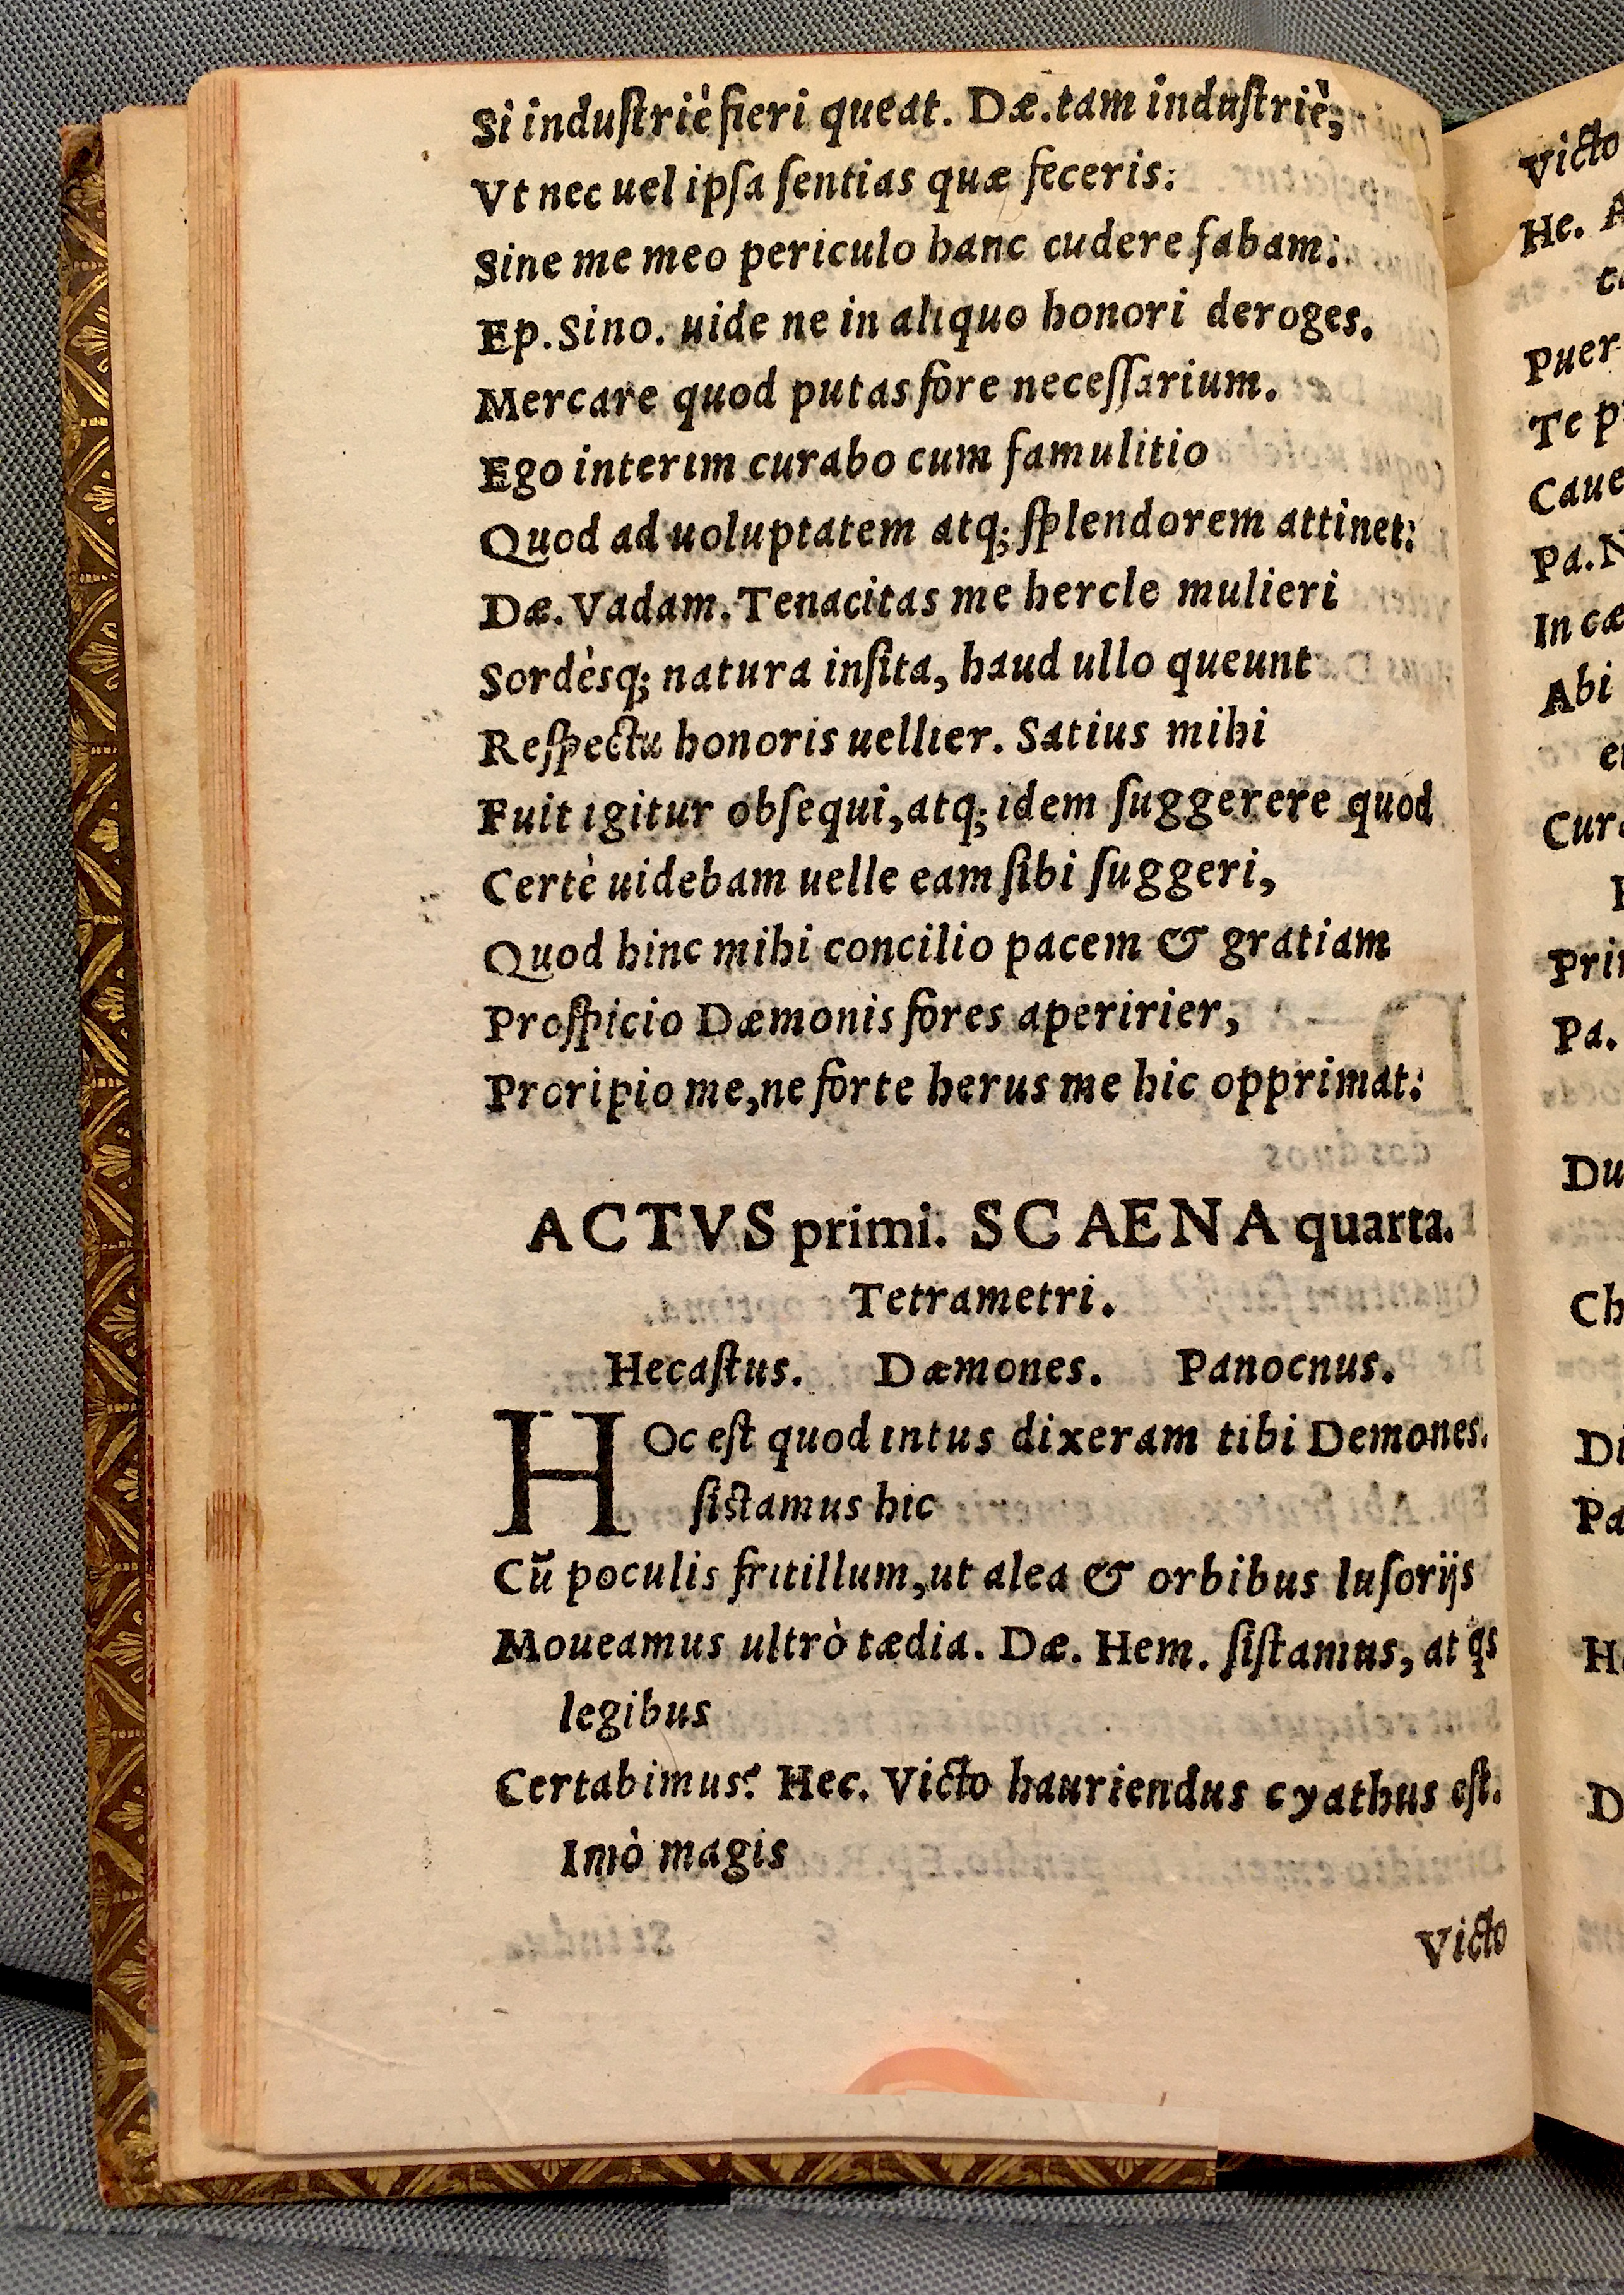 Si induſtriè fieri queat. Dæ. tam induſtriè,
Vt nec uel ipſa ſentias quæ feceris:
Sine me meo periculo hanc cudere fabam:
Ep. Sino. uide ne in aliquo honori deroges.
Mercare quod putas fore neceſſarium.
Ego interim curabo cum famulitio
Quod ad uoluptatem atq; ſplendorem attinet:
Dæ. Vadam. Tenacitas me hercle mulieri
Sordèsq; natura inſita, haud ullo queunt
Reſpectu honoris uellier. Satius mihi
Fuit igitur obſequi, atq; idem ſuggerere quod
Certè uidebam uelle eam ſibi ſuggeri,
Quod hinc mihi concilio pacem & gratiam
Proſpicio Dæmonis fores aperirier,
Proripio me, ne forte herus me hic opprimat:
ACTVS primi. SCAENA quarta.
Tetrametri.
Hecaſtus. Dæmones. Panocnus.
HOc eſt quod intus dixeram tibi Demones.
ſiſtamus hic
Cū poculis fritillum, ut alea & orbibus luſorijs
Moueamus ultrò tædia. Dæ. Hem. ſiſtamus, at qs
legibus
Certabimus? Hec. Victo hauriendus cyathus eſt.
Imò magis
Victo
Victo
He. A
Puer
Te p
Caue
Pa. N
In cæ
Abi
Cur
Pri
Pa.
Du
Ch
Di
Pa
H
D